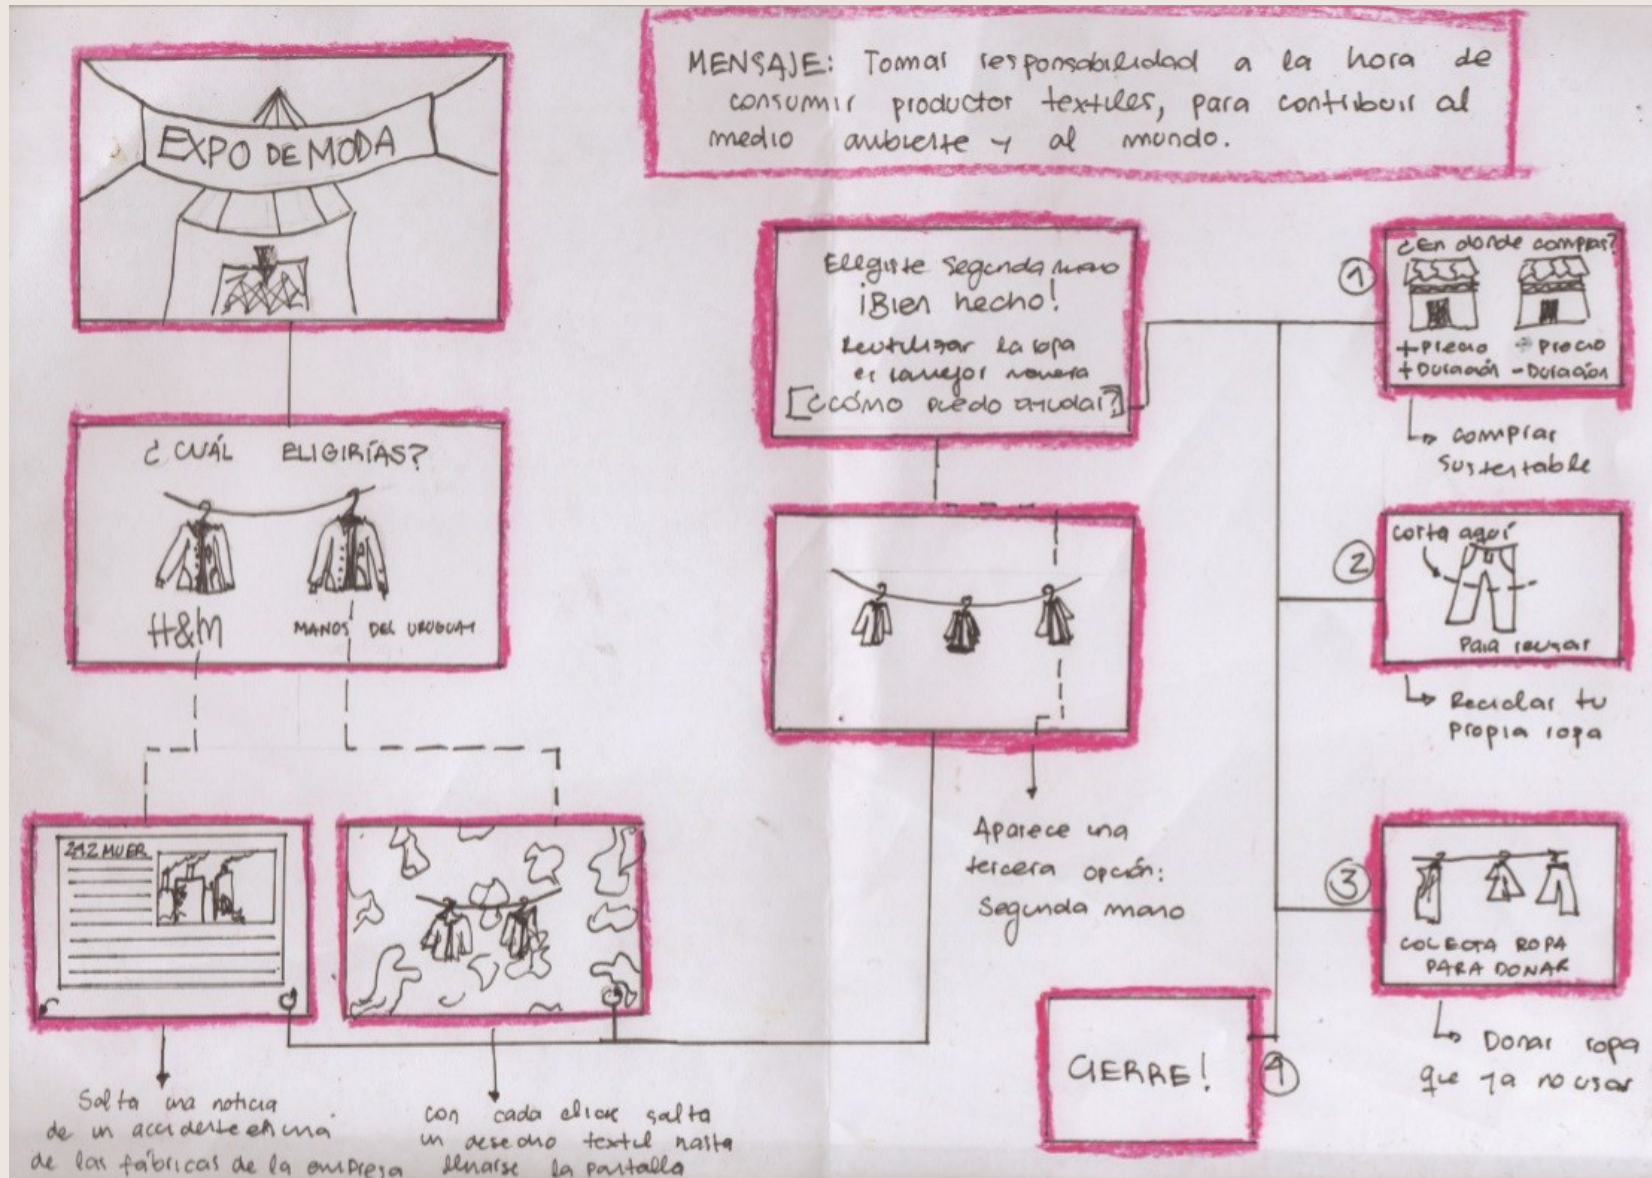 EXPO DE MODA
MENSAJE: Tomar responsabilidad a la hora de
consumir productor textiles, para contribuir al
medio ambiente y al mundo.
¿CUÁL ELIGIRÍAS?
H&M
MANOS DEL URUGUAY
242 MUER
Salta una noticia
de un accidente en una
de las fábricas de la empresa
con cada click salta
un desecho textil hasta
llenarse la pantalla
Elegiste segunda mano
¡Bien hecho!
Reutilizar la ropa
es la mejor manera
[¿cómo puedo ayudar?]
Aparece una
tercera opción:
Segunda mano
1
¿En donde compras?
+Precio
+Duración
- Precio
-Duración
comprar
sustentable
2
corta aquí
Para reusar
Reciclar tu
propia ropa
3
COLECTA ROPA
PARA DONAR
Donar ropa
que ya no usar
CIERRE!